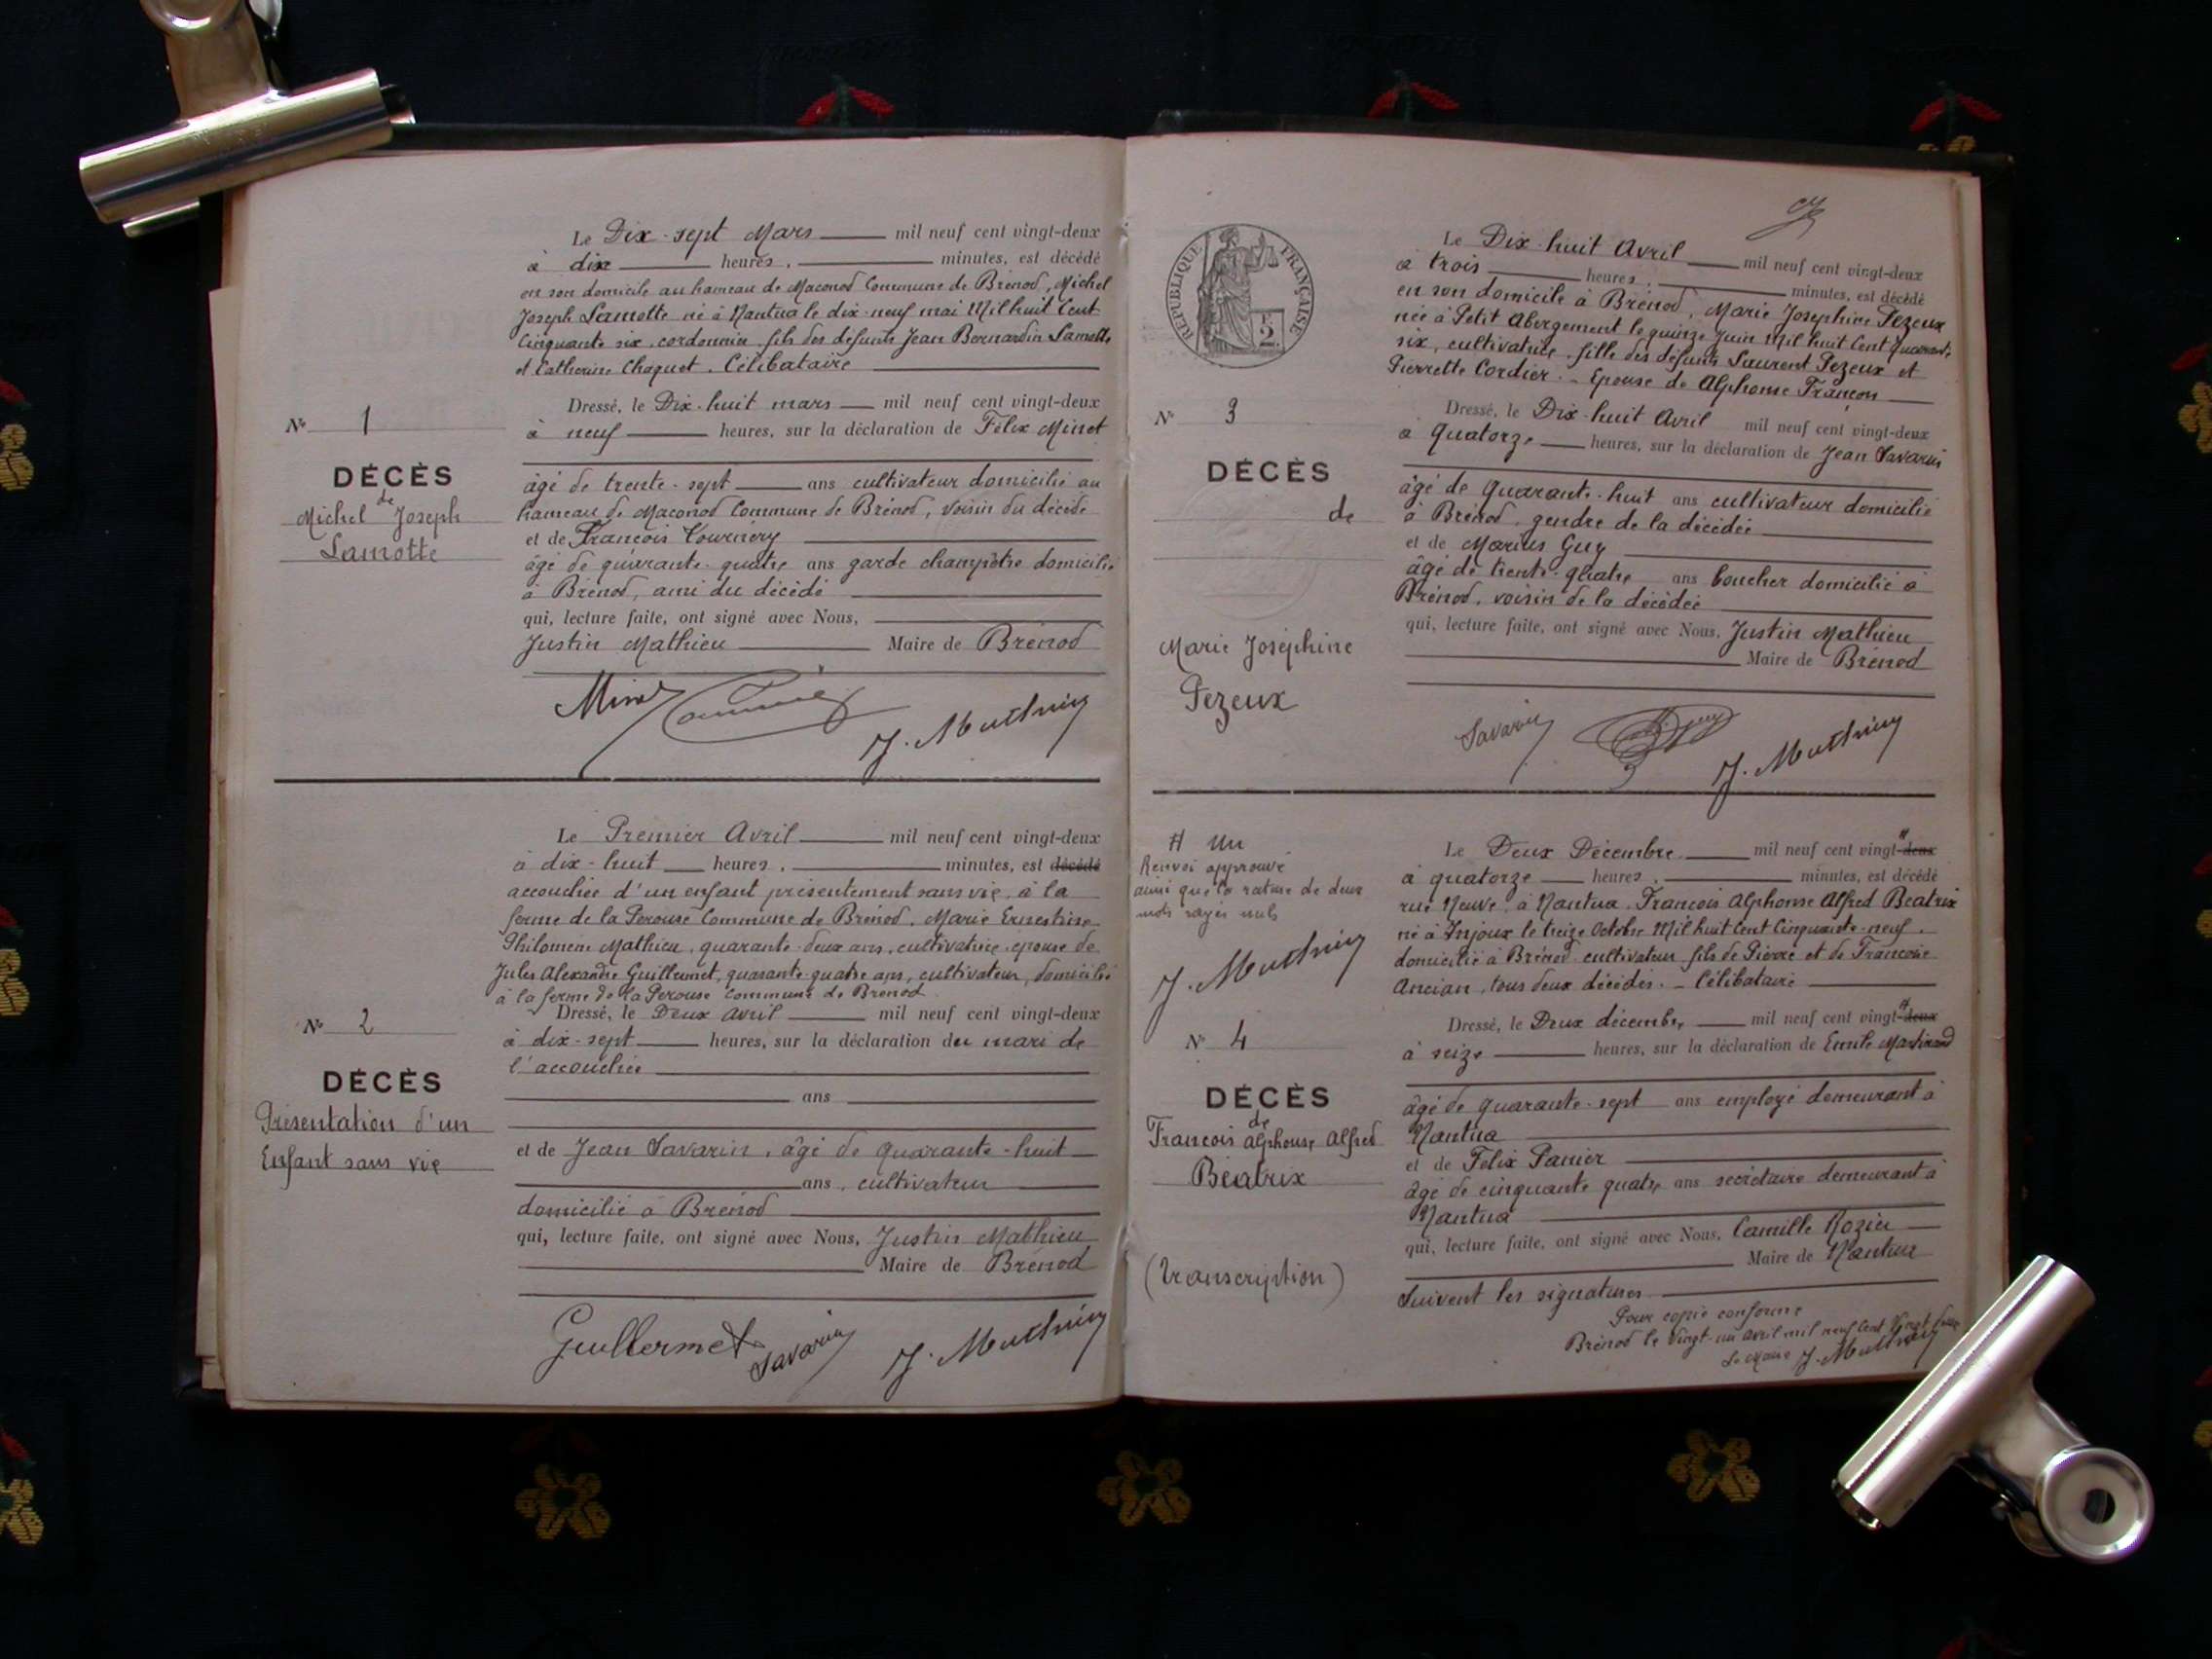 Le Dix-sept Mars mil neuf cent vingt-deux
à dix heures, minutes, est décédé
en son domicile au hameau de Maconod Commune de Brénod, Michel
Joseph Lamotte né à Nantua le dix-neuf mai Mil huit Cent
Cinquante six, cordonnier, fils des défunts Jean Bernardin Lamotte
et Catherine Choquet. Célibataire
Dressé, le Dix-huit mars mil neuf cent vingt-deux
à neuf heures, sur la déclaration de Félix Minet
N° 1
DÉCÈS
de
Michel Joseph
Lamotte
âgé de trente-sept ans cultivateur domicilié au
hameau de Maconod Commune de Brénod, voisin du décédé
et de François Tournery
âgé de quarante-quatre ans garde champêtre domicilié
à Brénod, ami du décédé
qui, lecture faite, ont signé avec Nous,
Justin Mathieu Maire de Brénod
Minet
J. Mathieu
Le Premier Avril mil neuf cent vingt-deux
à dix-huit heures, minutes, est décédé
accouchée d'un enfant présentement sans vie, à la
ferme de la Perouse Commune de Brénod, Marie Ernestine
Philomène Mathieu, quarante-deux ans, cultivatrice épouse de
Jules Alexandre Guillermet, quarante-quatre ans, cultivateur, domicilié
à la ferme de la Perouse Commune de Brénod
N° 2
Dressé, le Deux avril mil neuf cent vingt-deux
à dix-sept heures, sur la déclaration du mari de
l'accouchée
DÉCÈS
Présentation d'un
Enfant sans vie
ans
et de Jean Savarin, âgé de quarante-huit
ans, cultivateur
domicilié à Brénod
qui, lecture faite, ont signé avec Nous, Justin Mathieu
Maire de Brénod
Guillermet Savarin J. Mathieu
RÉPUBLIQUE FRANÇAISE
2
Le Dix-huit Avril mil neuf cent vingt-deux
à trois heures, minutes, est décédé
en son domicile à Brénod, Marie Joséphine Pezeux
née à Petit Abergement le quinze Juin Mil huit Cent quarante
six, cultivatrice, fille des défunts Laurent Pezeux et
Pierrette Cordier. - Epouse de Alphonse Françon
N° 3
Dressé, le Dix-huit Avril mil neuf cent vingt-deux
à Quatorze heures, sur la déclaration de Jean Savarin
DÉCÈS
de
Marie Joséphine
Pezeux
âgé de Quarante-huit ans cultivateur domicilié
à Brénod, gendre de la décédée
et de Marius Guy
âgé de trente-quatre ans boucher domicilié à
Brénod, voisin de la décédée
qui, lecture faite, ont signé avec Nous, Justin Mathieu
Maire de Brénod
Savarin Guy J. Mathieu
# Un
Renvoi approuvé
ainsi que la rature de deux
mots rayés nuls
J. Mathieu
Le Deux Décembre mil neuf cent vingt-deux #
à quatorze heures, minutes, est décédé
rue Neuve, à Nantua, François Alphonse Alfred Béatrix
né à Injoux le treize Octobre Mil huit Cent Cinquante-neuf,
domicilié à Brénod cultivateur fils de Pierre et de Françoise
Ancian, tous deux décédés. - Célibataire
N° 4
Dressé, le Deux décembre mil neuf cent vingt-deux #
à seize heures, sur la déclaration de Emile Martinand
DÉCÈS
de
François Alphonse Alfred
Béatrix
(Transcription)
âgé de quarante-sept ans employé demeurant à
Nantua
et de Félix Panier
âgé de cinquante quatre ans secrétaire demeurant à
Nantua
qui, lecture faite, ont signé avec Nous, Camille Rozier
Maire de Nantua
Suivent les signatures
Pour copie conforme
Brénod le Vingt-un avril mil neuf Cent Vingt deux
Le Maire J. Mathieu